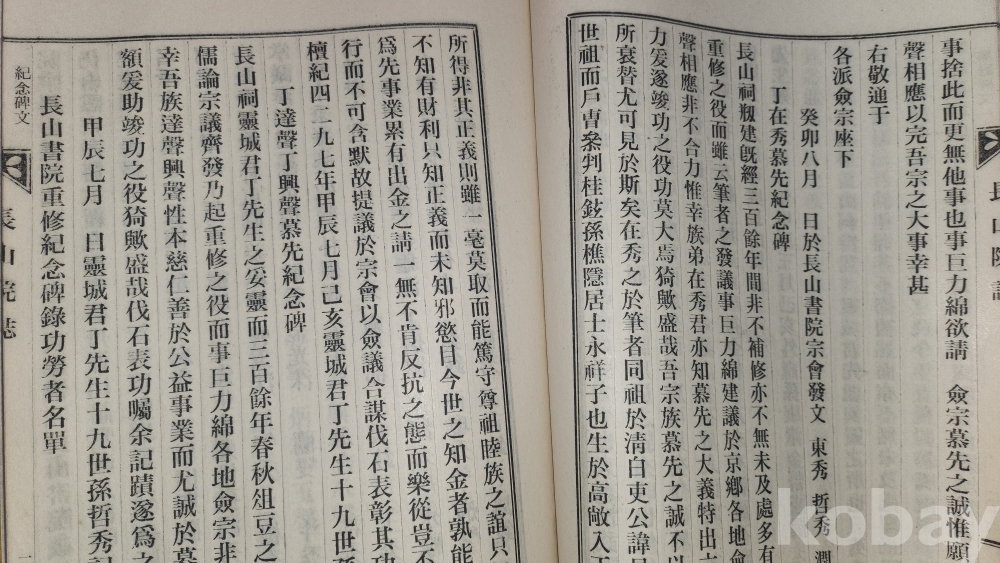 事捨此而更無他事也事巨力綿欲請 僉宗慕先之誠惟願
聲相應以完吾宗之大事幸甚
右敬通于
各派僉宗座下
癸卯八月 日於長山書院宗會發文 東秀 哲秀 潤
丁在秀慕先紀念碑
長山祠刱建旣經三百餘年間非不補修亦不無未及處多有
重修之役而雖云筆者之發議事巨力綿建議於京鄉各地僉
聲相應非不合力惟幸族弟在秀君亦知慕先之大義特出
力爰遂竣功之役功莫大焉猗歟盛哉吾宗族慕先之誠不以
所衰替尤可見於斯矣在秀之於筆者同祖於淸白吏公諱
世祖而戶曹參判桂鉉孫樵隱居士永祥子也生於高敞入
長山院誌
所得非其正義則雖一毫莫取而能篤守尊祖睦族之誼只
不知有財利只知正義而未知邪慾目今世之知金者孰能
爲先事業累有出金之請一無不肯反抗之態而樂從豈不
行而不可含默故提議於宗會以僉議合謀伐石表彰其功
檀紀四二九七年甲辰七月己亥靈城君丁先生十九世孫
丁達聲丁興聲慕先紀念碑
長山祠靈城君丁先生之妥靈而三百餘年春秋俎豆之
儒論宗議齊發乃起重修之役而事巨力綿各地僉宗非
幸吾族達聲興聲性本慈仁善於公益事業而尤誠於慕
額爰助竣功之役猗歟盛哉伐石表功囑余記蹟遂爲之
甲辰七月 日靈城君丁先生十九世孫哲秀記
長山書院重修紀念碑錄功勞者名單
紀念碑文
長山院誌
一
kobay